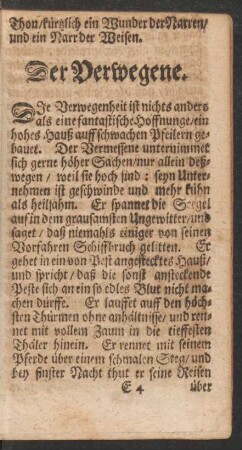 Thon / kürtzlich ein Wunder der Narren /
und ein Narr der Weisen.
Der Verwegene.
DJe Verwegenheit ist nichts anders
als eine fantastische Hoffnunge / ein
hohes Hauß auff schwachen Pfeilern ge-
bauet. Der Vermessene unternimmet
sich gerne höher Sachen / nur allein deß-
wegen / weil sie hoch sind : seyn Unter-
nehmen ist geschwinde und mehr kühn
als heilsam. Er spannet die Seegel
auf in dem grausamsten Ungewitter / und
saget / daß niemahls einiger von seinen
Vorfahren Schiffbruch gelitten. Er
gehet in ein von Pest angestecktes Hauß /
und spricht / daß die sonst ansteckende
Peste sich an ein so edles Blut nicht ma-
chen dürffe. Er lauffet auff den höch-
sten Thürmen ohne anhältnisse / und ren-
net mit vollem Zaum in die tieffesten
Thäler hinein. Er rennet mit seinem
Pferde über einem schmalen Steg / und
bey finster Nacht thut er seine Reisen
E 4 über